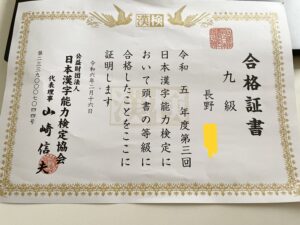 漢検
合格証書
九級
長野
令和五年度第三回
日本漢字能力検定に
おいて頭書の等級に
合格したことをここに
証明します
令和六年二月十六日
公益財団法人
日本漢字能力検定協会
代表理事 山崎信夫